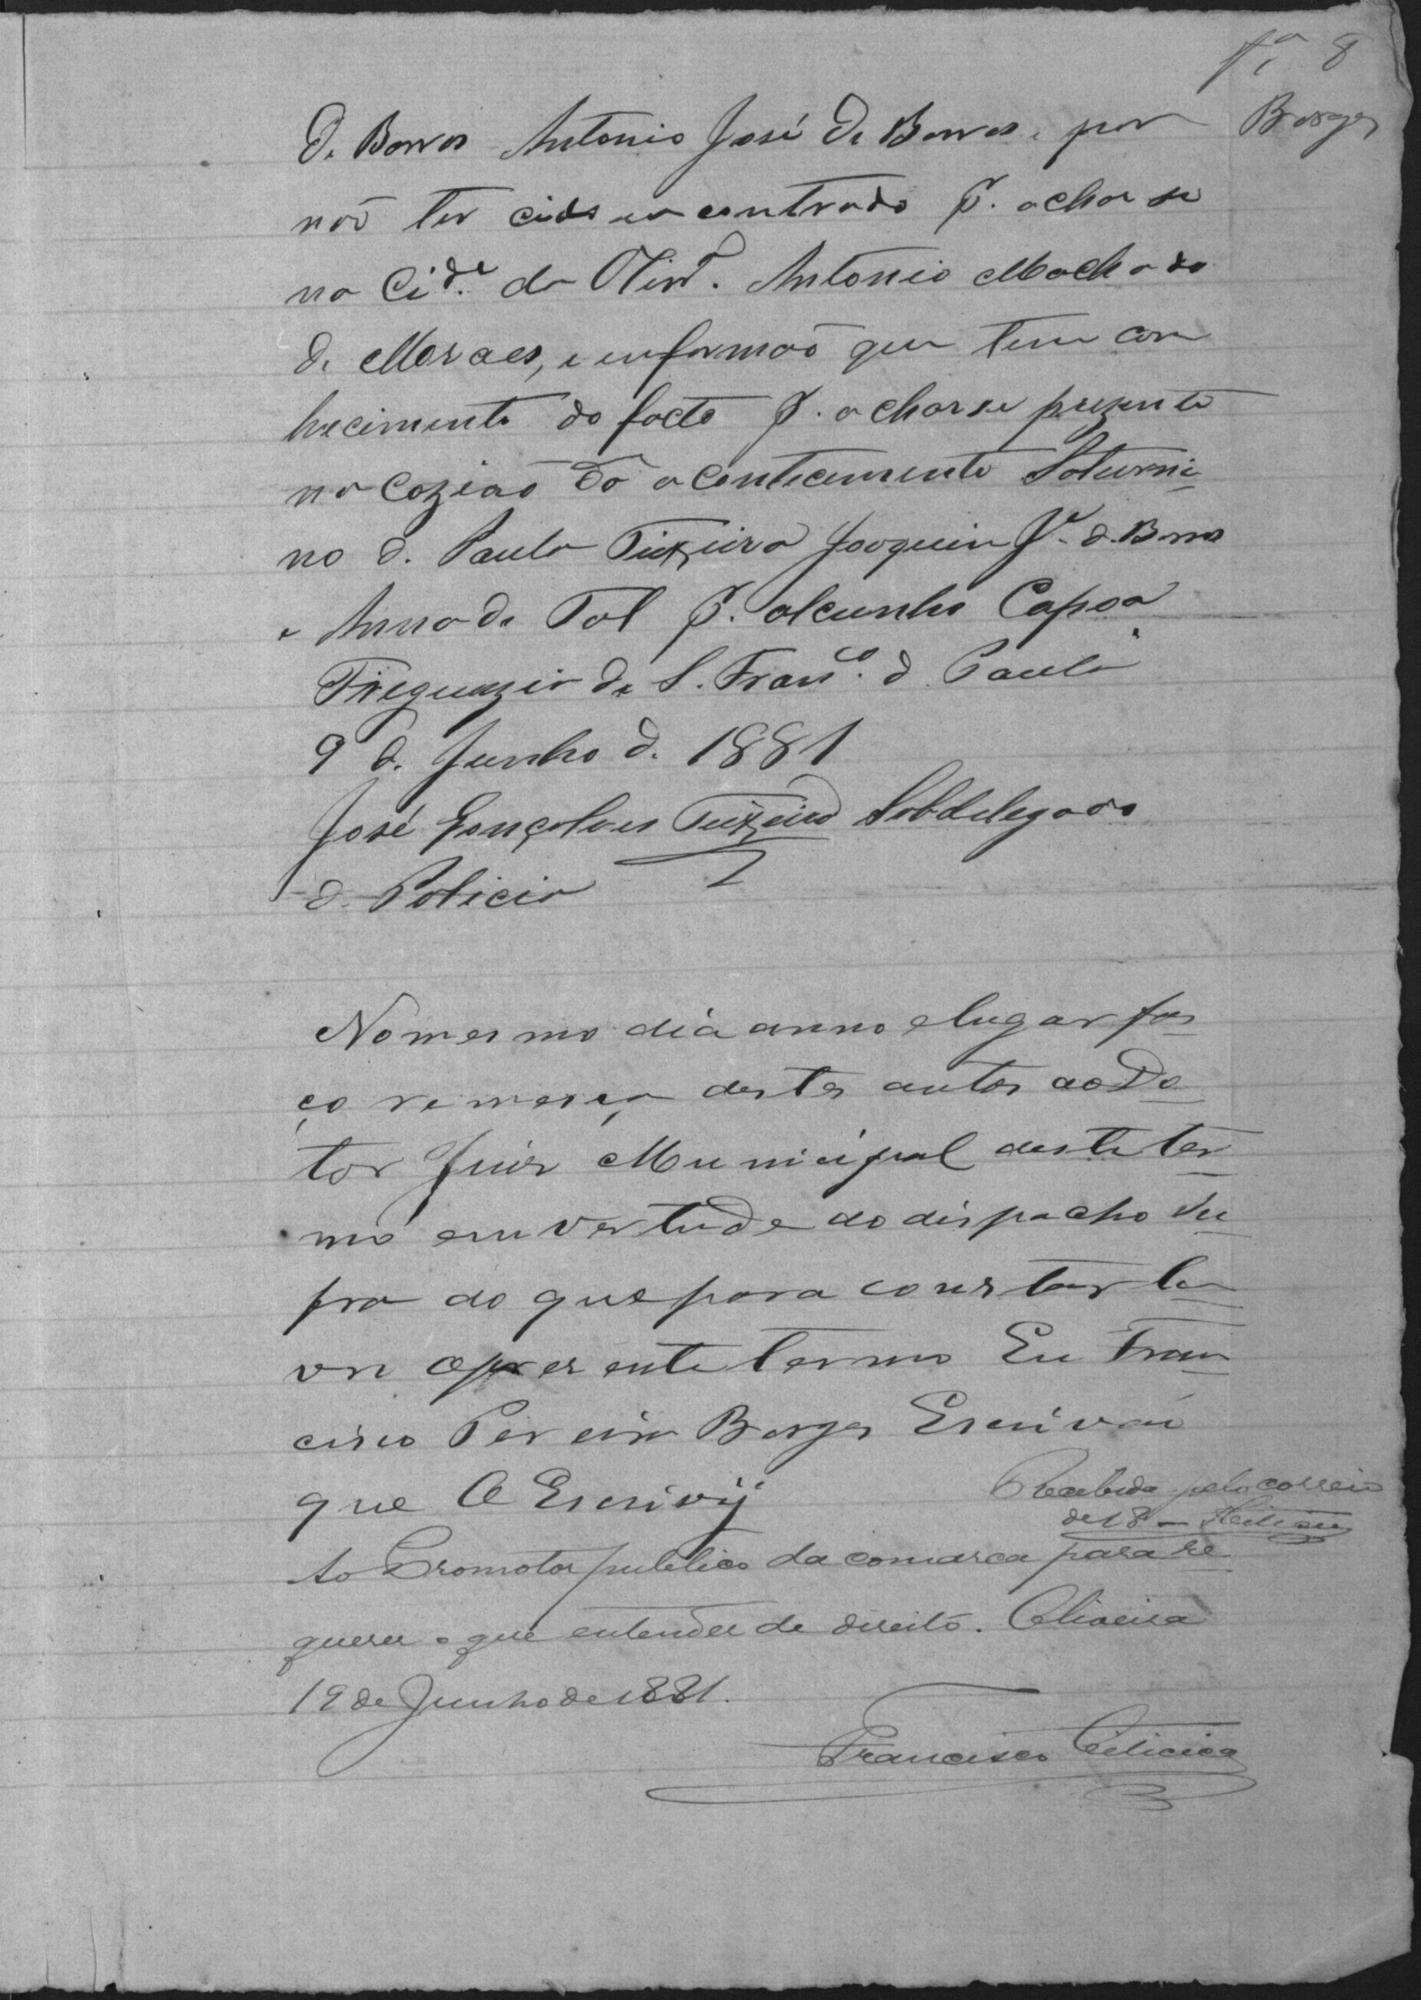 fª 8
Borges
D. Barros Antonio José de Barros, por
não ter cido encontrado p. achar se
na Cid.e da Olivª. Antonio Machado
de Moraes, e enformão que tem con
hecimento do facto p. achar se prezente
na cozião do acontecimento Saturni-
no d. Paula Teixeira Joaquim Je. d. Barros
e Anna de Tal p. alcunha Capoa
Freguezia de S. Franco. d. Paula
9 d. Junho d. 1881
José Gonçalves Teixeira Subdelegado
d. Policia
No mesmo dia anno e lugar fa-
ço remeça destes autos ao Do
tor Juis Municipal deste ter-
mo em vertude do dispacho su-
pra do que para constar la-
vri o presente termo Eu Fran-
cisco Pereira Borges Escrivão
que O Escrivij
Recebida pelo correio
de 18 —
Ao Promotor publico da comarca para re
querer o que entender de direito. Oliveira
19 de Junho de 1881.
Francisco